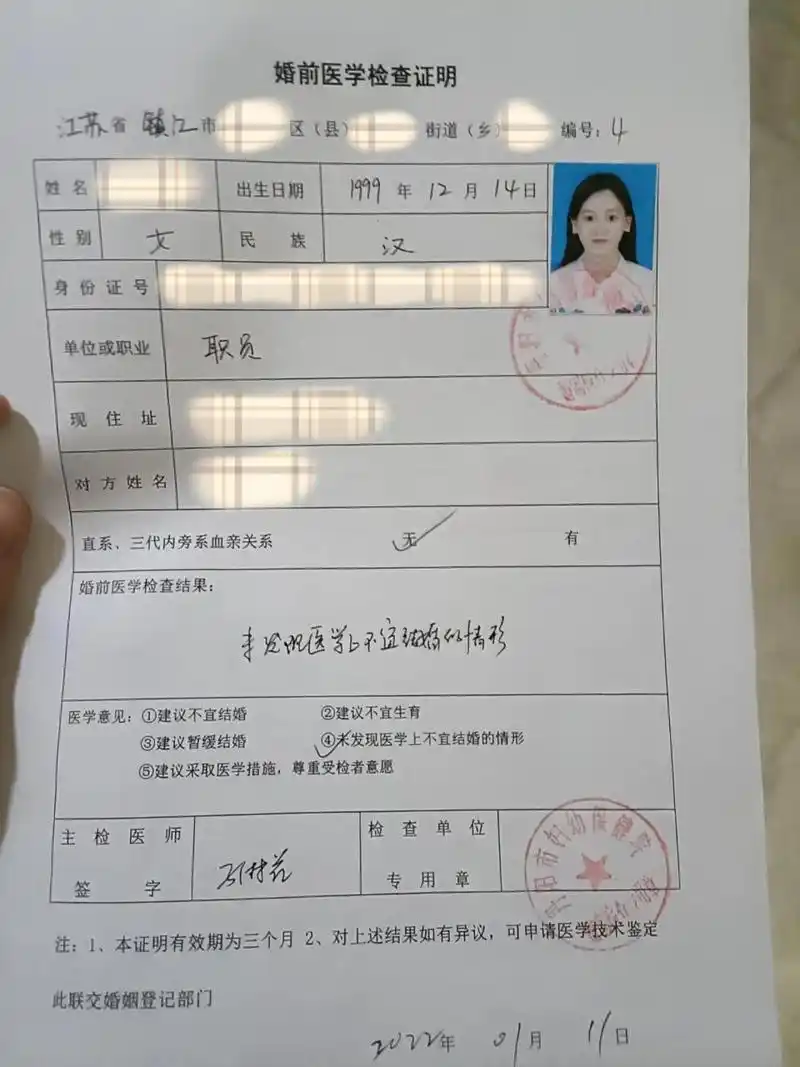 婚前医学检查证明
江苏省 镇江市 区（县） 街道（乡） 编号：4
姓名 出生日期 1999年12月14日
性别 女 民族 汉
身份证号
单位或职业 职员
现住址
对方姓名
直系、三代内旁系血亲关系 无 有
婚前医学检查结果：
未发现医学上不宜结婚的情形
医学意见：①建议不宜结婚 ②建议不宜生育
③建议暂缓结婚 ④未发现医学上不宜结婚的情形
⑤建议采取医学措施，尊重受检者意愿
主检医师 检查单位
签字 专用章
丹阳市妇幼保健院
注：1、本证明有效期为三个月 2、对上述结果如有异议，可申请医学技术鉴定
此联交婚姻登记部门
2022年 01月 11日